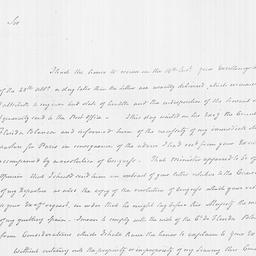 Sir
I had the honor to receive on the 10th Inst. your Excellency's
of the 28th Ulto. a day later than the letters are usually delivered, which
attribute to my own bad state of health and the indisposition of the Servant
generally send to the Post Office. This day waited on his Exy the Count
Florida Blanca and informed him of the necessity of my immediate de
parture for Paris in consequence of the advice I had recd from your
accompanied by a resolution of Congress. That Minister appeared to be of
opinion that I should send him an extract of your letter relative to the
of my as also the copy of the resolution of Congress which your
in your of august, in order that he might lay before his Majesty the
of my quitting Spain. I mean to comply with the wish of the Ct de Florida Blanca
from Considerations which I shall have the honor to explain to your
Without entering into the propriety or impropriety of my leaving this